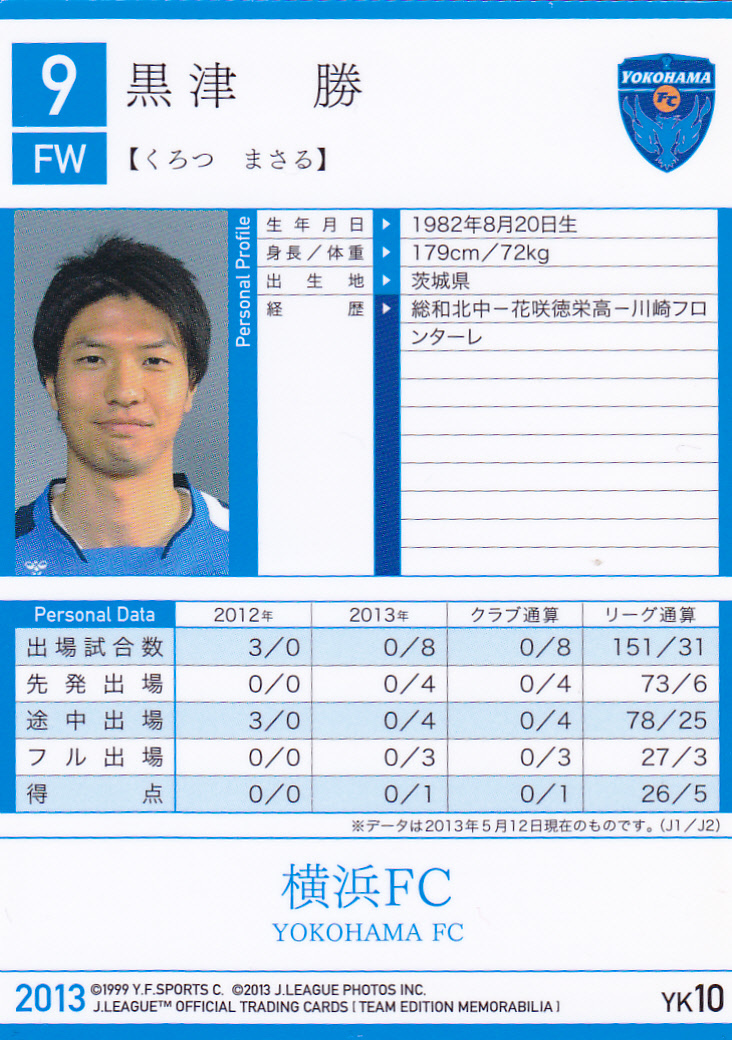 9
黒津　勝
FW
【くろつ　まさる】
YOKOHAMA
FC
Personal Profile
生年月日 1982年8月20日生
身長／体重 179cm／72kg
出生地 茨城県
経歴 総和北中－花咲徳栄高－川崎フロ
ンターレ
Personal Data 2012年 2013年 クラブ通算 リーグ通算
出場試合数 3／0 0／8 0／8 151／31
先発出場 0／0 0／4 0／4 73／6
途中出場 3／0 0／4 0／4 78／25
フル出場 0／0 0／3 0／3 27／3
得点 0／0 0／1 0／1 26／5
※データは2013年5月12日現在のものです。（J1／J2）
横浜FC
YOKOHAMA FC
2013 ©1999 Y.F.SPORTS C. ©2013 J.LEAGUE PHOTOS INC.
J.LEAGUE™ OFFICIAL TRADING CARDS [ TEAM EDITION MEMORABILIA ]
YK10